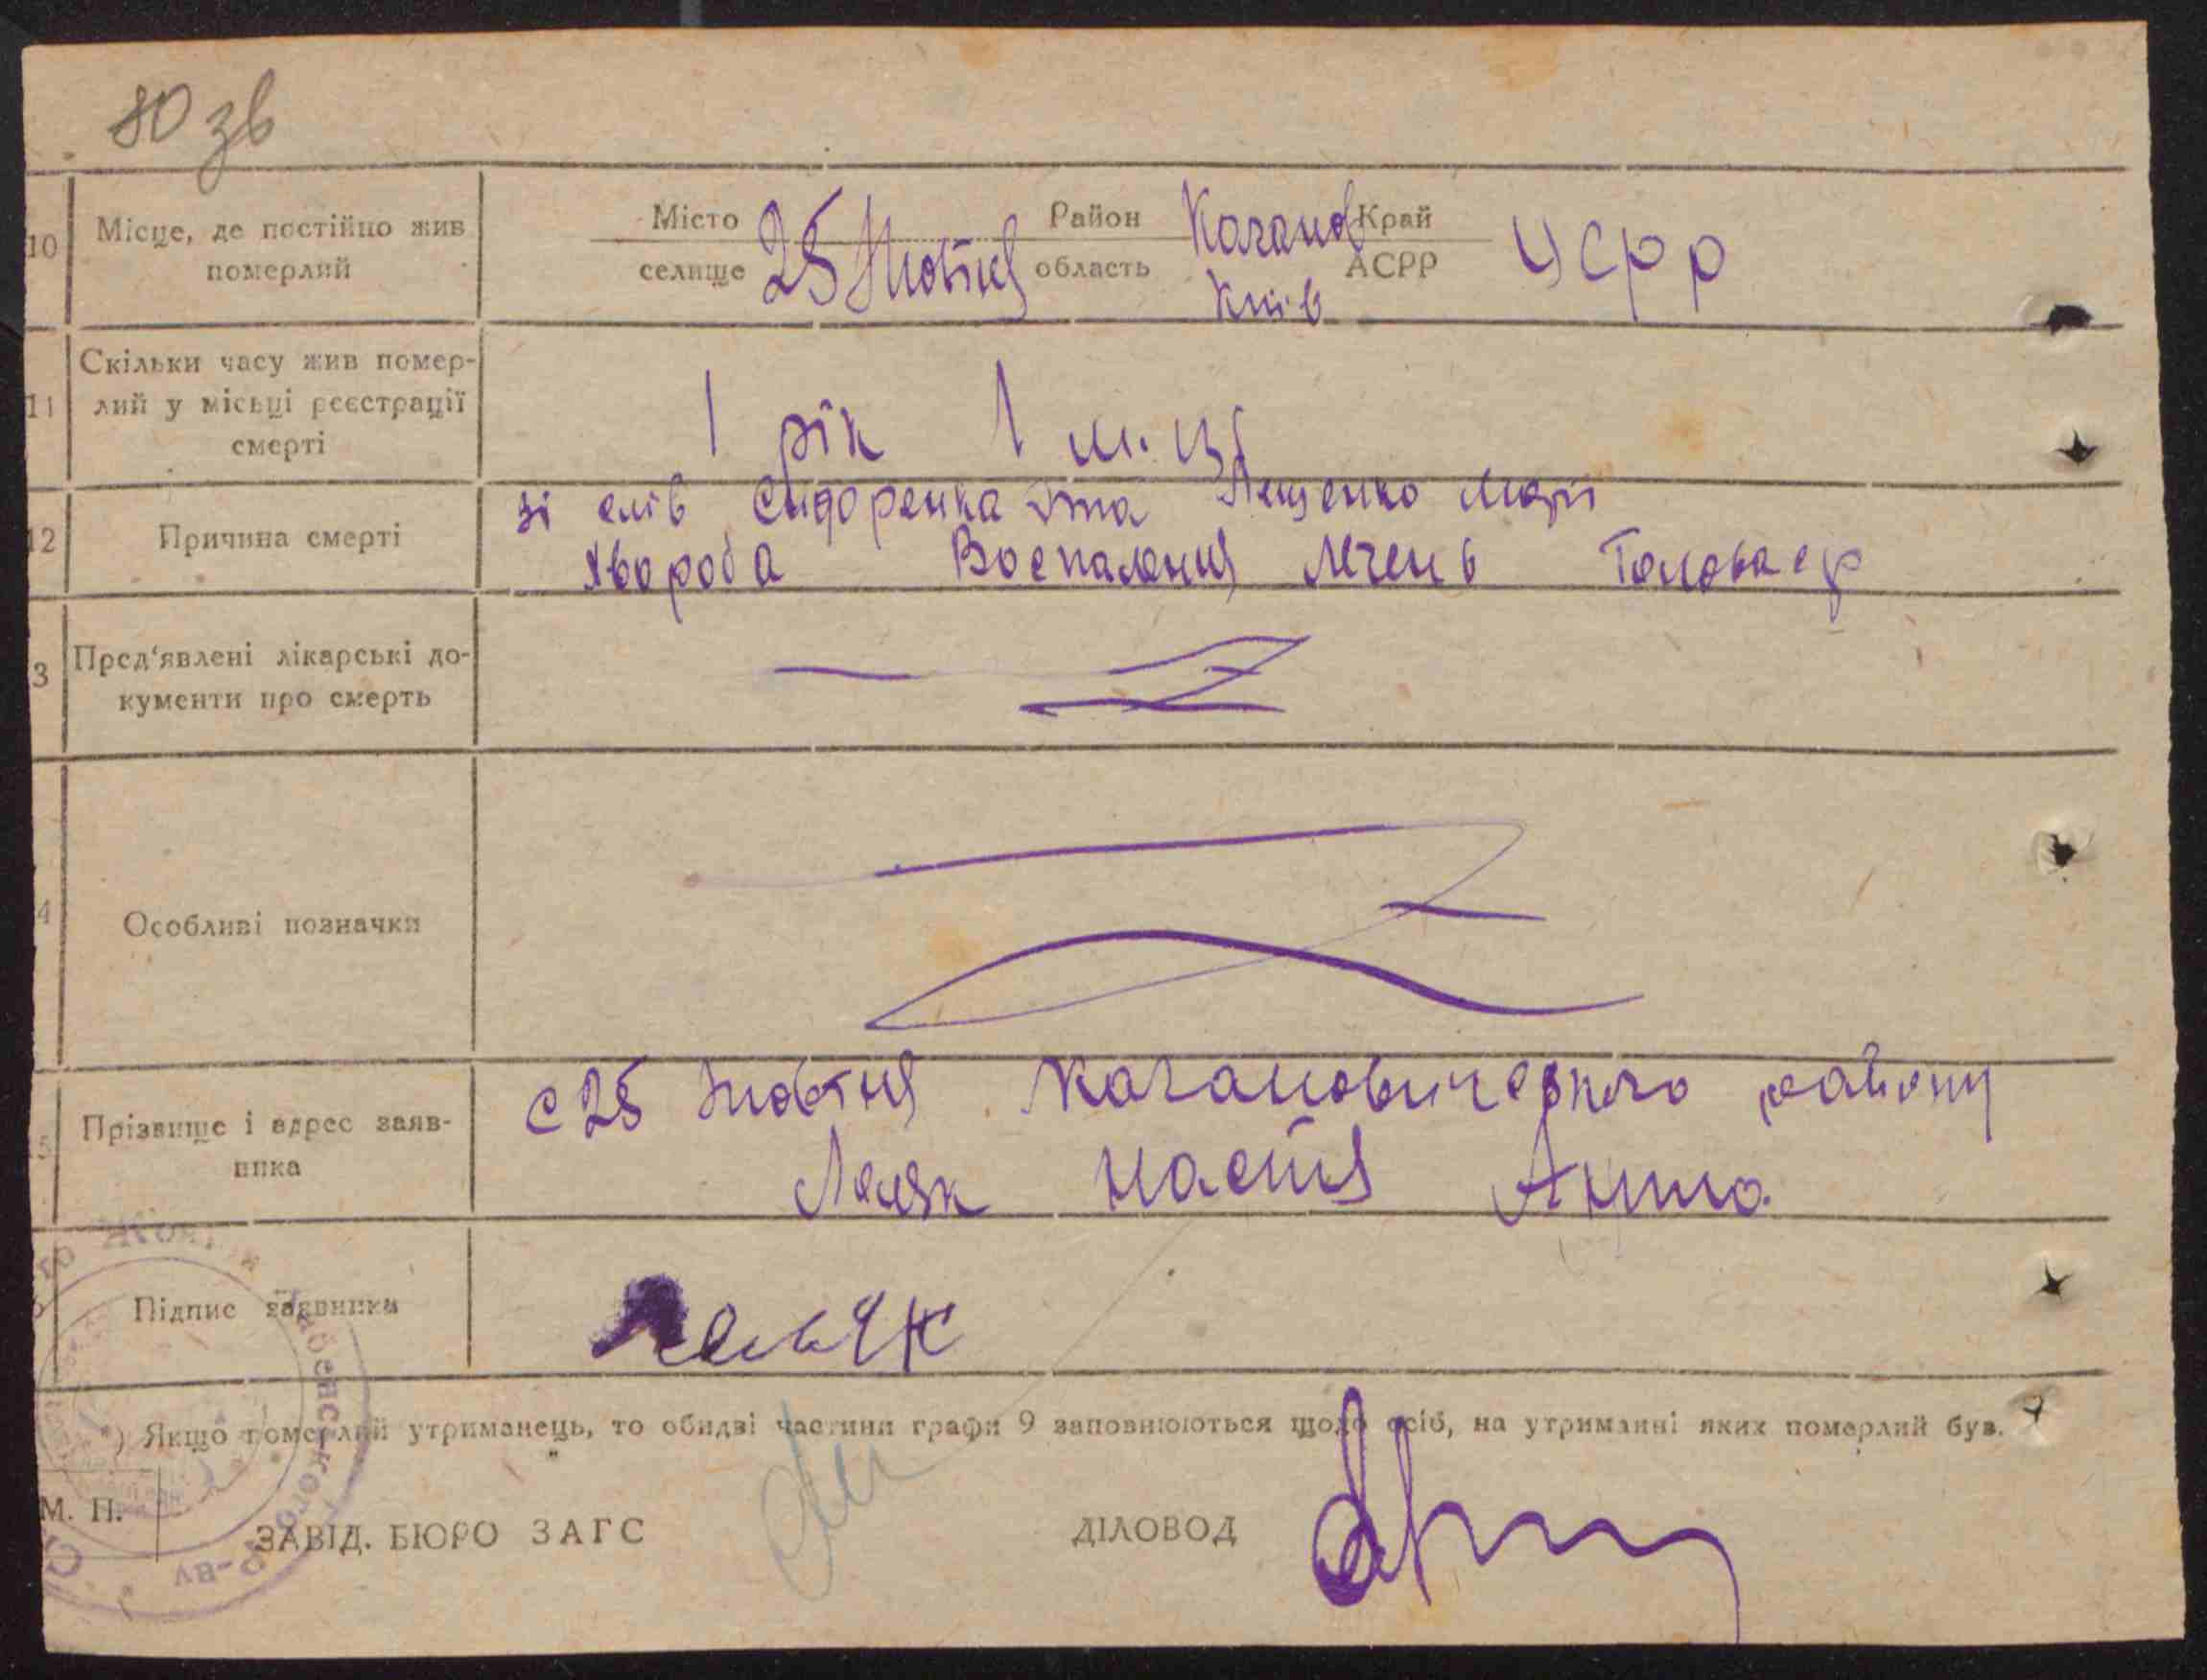 80 зв
10 Місце, де постійно жив померлий
Місто селище 25 Жовтня Район область Каганов Київ Край АСРР УСРР
11 Скільки часу жив померлий у місьці реєстрації смерті
1 рік 1 м-ць
12 Причина смерті
зі слів Сидоренка та Марії
хвороба Воспаления
3 Пред'явлені лікарські документи про смерть
4 Особливі позначки
5 Прізвище і адрес заявника
с 25 Жовтня Кагановичського району
Леляк Настя
Підпис заявника
Лельяк
*) Якщо померлий утриманець, то обидві частини графи 9 заповнюються щодо осіб, на утриманні яких померлий був.
М. П.
ЗАВІД. БЮРО ЗАГС
ДІЛОВОД